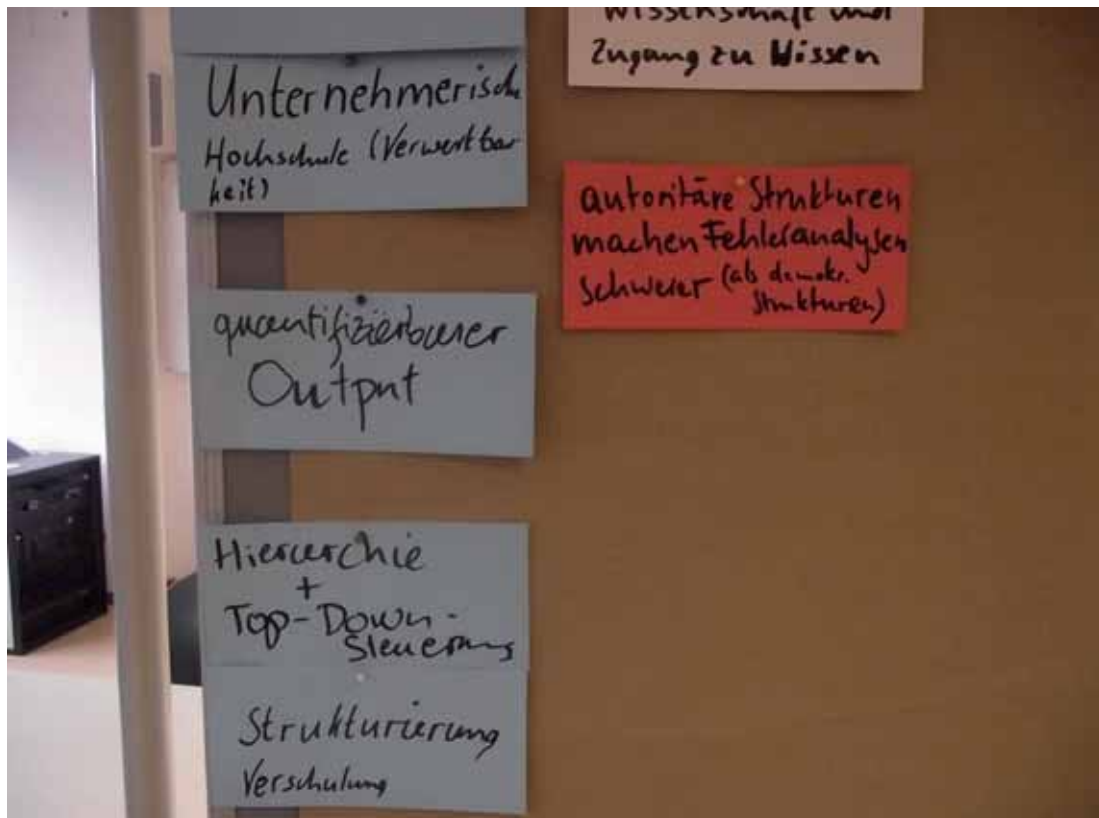 Unternehmerische
Hochschule (Verwertbar-
keit)
quantifizierbarer
Output
Hierarchie
+
Top-Down-
Steuerung
Strukturierung
Verschulung
Wissenschaft und
Zugang zu Wissen
autoritäre Strukturen
machen Fehleranalysen
schwerer (als demokr.
Strukturen)